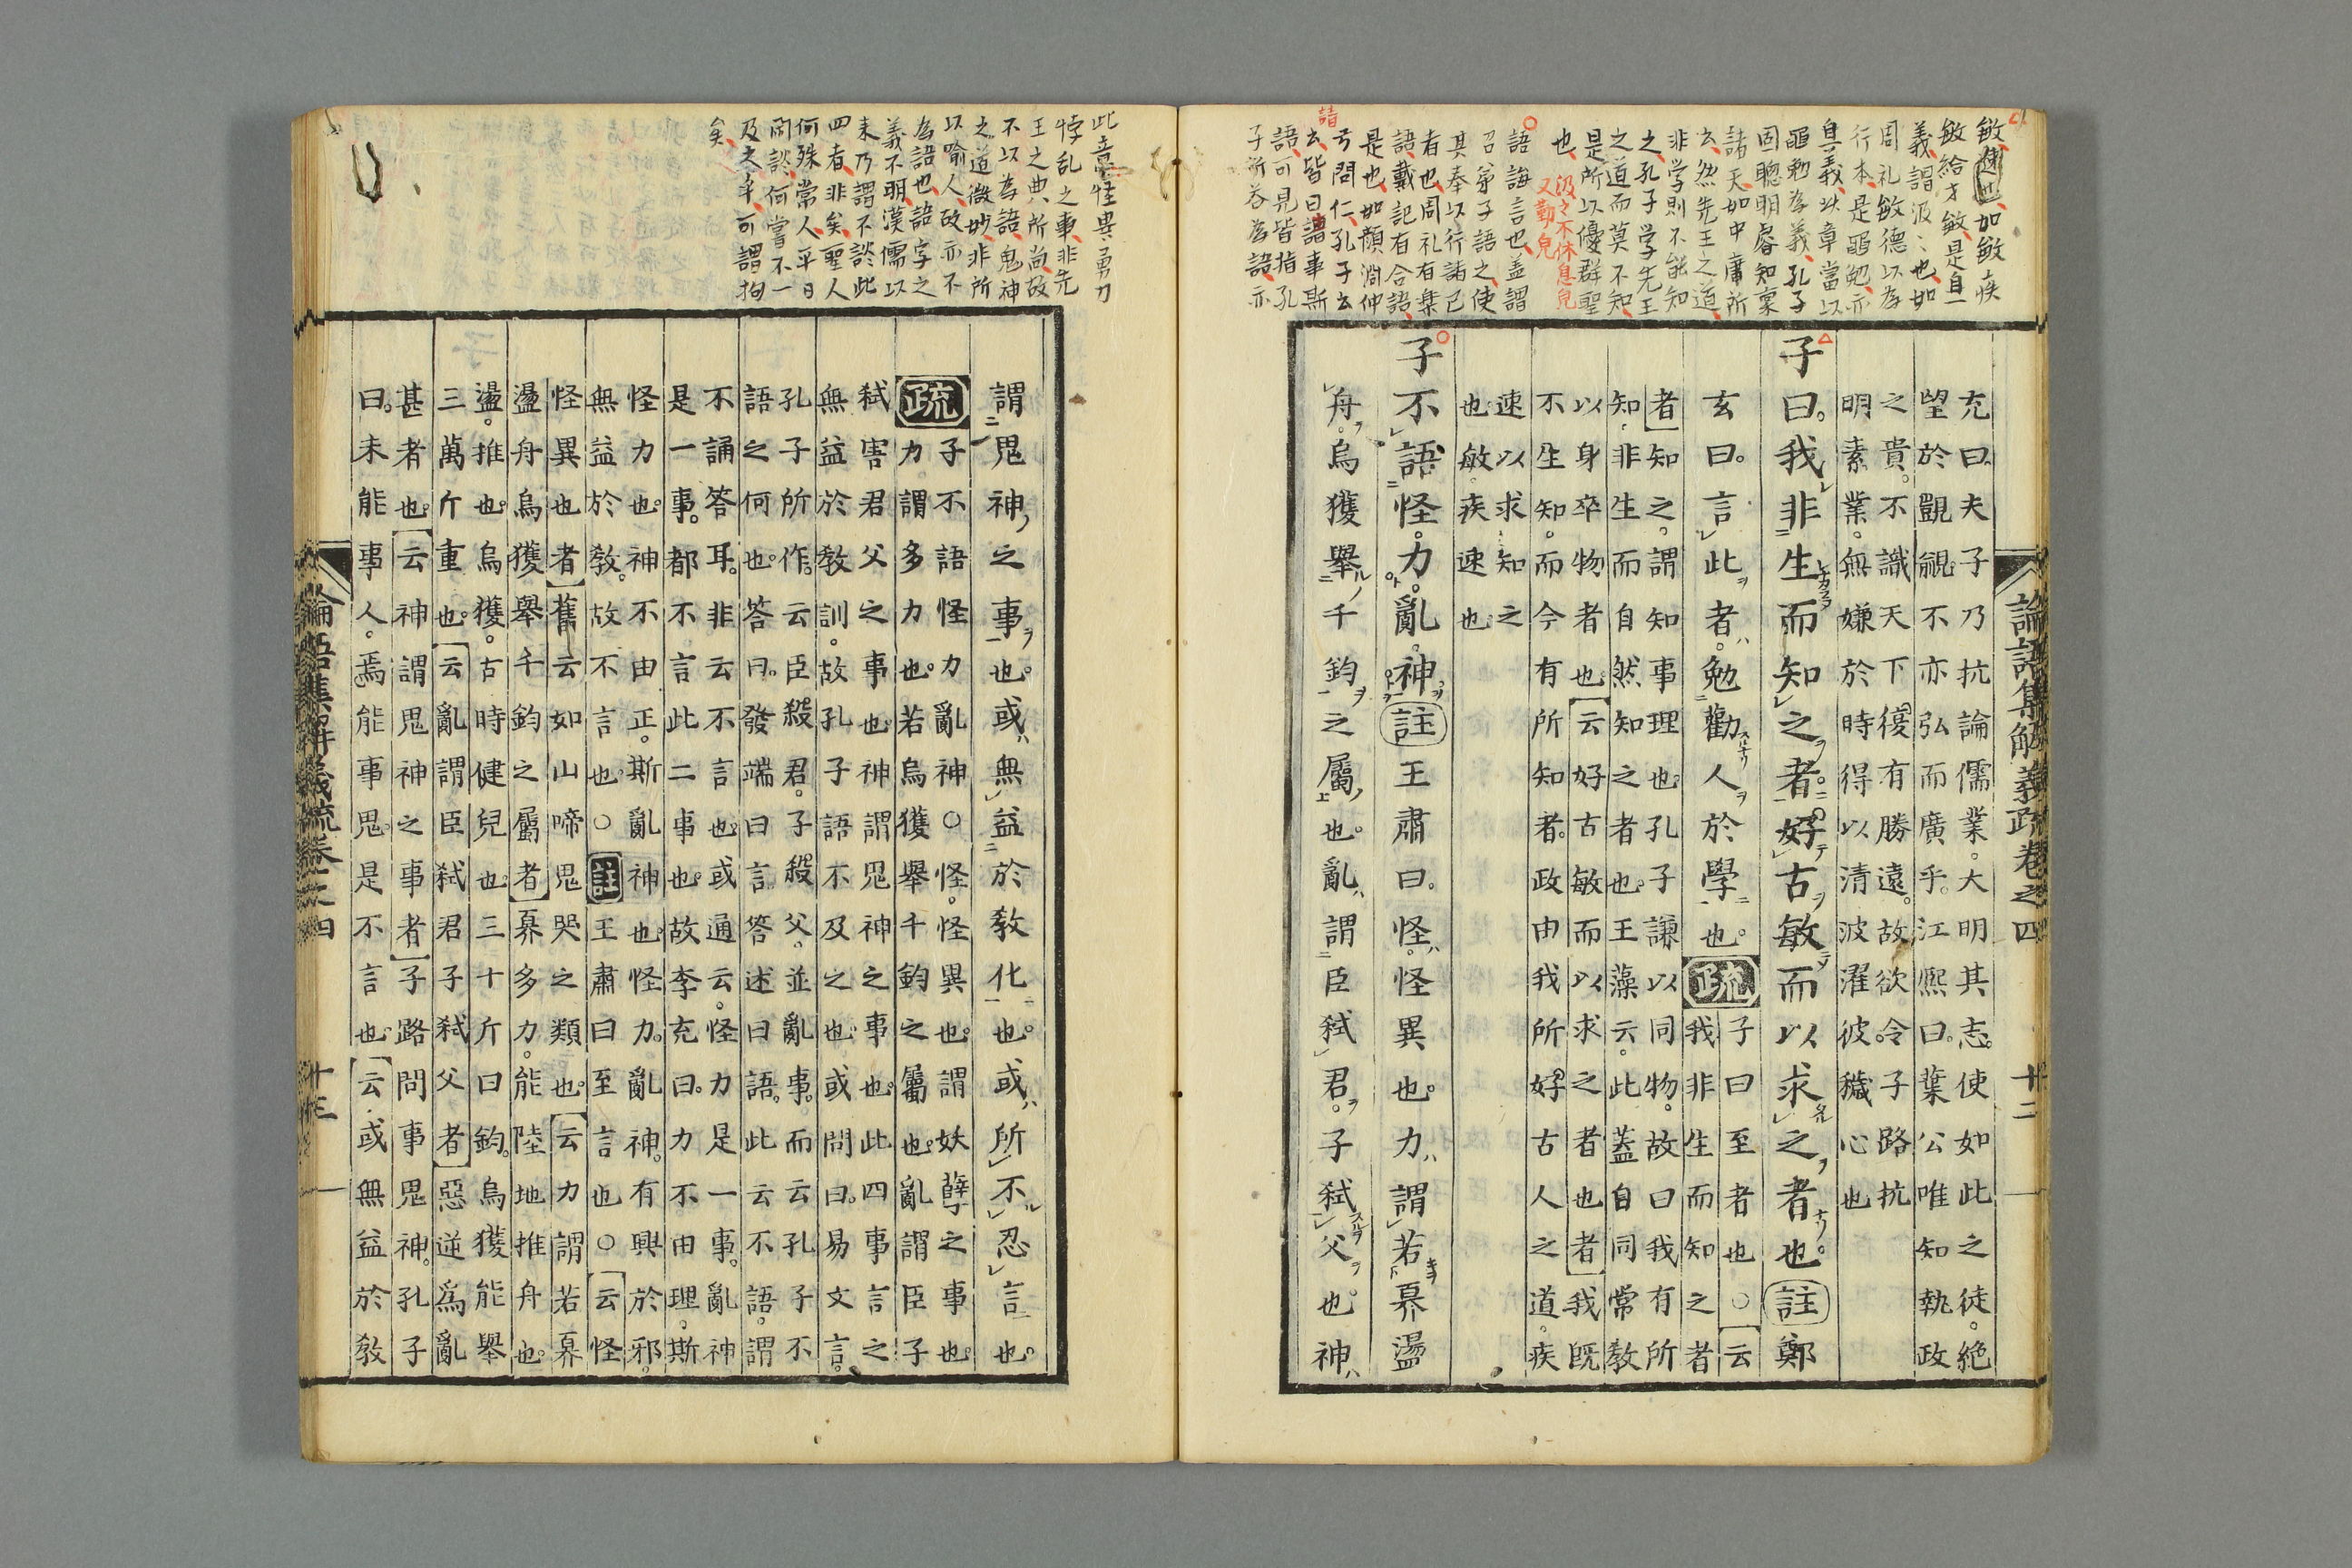 敏、速也、如敏疾
敏給才敏、是自一
義、謂汲〻也、如
周礼敏德以為
行本、是黽勉亦
其義、此章當以
黽勉為義、孔子
固聰明睿知稟
諸天、如中庸所
云、然先王之道、
非学則不能知
之、孔子学先王
之道而莫不知、
是所以優群聖
也、
汲々不休息皃
又勤皃
語誨言也、盖謂
召弟子語之、使
其奉以行諸己
者也、周礼有樂
語、戴記有合語、
是也、如顏淵仲
弓問仁、孔子云
云、皆曰請事斯
語、可見皆指孔
子所荅為語、亦
論語集解義疏卷之四 十二
充曰夫子乃抗論儒業。大明其志。使如此之徒。絶
望於覬覦。不亦弘而廣乎。江熙曰。葉公唯知執政
之貴。不識天下復有勝遠。故欲令子路抗
明素業。無嫌於時得以清波濯彼穢心也
子曰。我非生而知之者。好古敏而以求之者也。註鄭
玄曰。言此者。勉勸人於學也。疏子曰至者也〇云
我非生而知之者
者知之。謂知事理也孔子謙以同物。故曰我有所
知。非生而自然知之者也。王藻云。此蓋自同常教
以身卒物者也。云好古敏而以求之者也者我既
不生知。而今有所知者。政由我所好古人之道。疾
速以求知之
也。敏疾速也
子不語怪。力。亂。神。註王肅曰。怪。怪異也。力謂若奡盪
舟。烏獲舉千鈞之屬也。亂謂臣弒君。子弒父也。神
此意、怪異、勇力
悖乱之事、非先
王之典所尚、故
不以為語、鬼神
之道微妙、非所
以喻人、故亦不
為語也、語字之
義不明、漢儒以
来乃謂不談此
四者、非矣、聖人
何殊常人、平日
閑談、何嘗不一
及之乎、可謂拘
矣、
謂鬼神之事也。或無益於教化也。或所不忍言也。
疏子不語怪力亂神〇怪。怪異也。謂妖孽之事也。
力謂多力也。若烏獲舉千鈞之屬也。亂謂臣子
弒害君父之事也。神謂鬼神之事也。此四事言之
無益於教訓。故孔子語不及之也。或問曰。易文言。
孔子所作。云臣殺君。子殺父。並亂事。而云孔子不
語之何也。答曰。發端曰言。答述曰語。此云不語。謂
不誦答耳。非云不言也。或通云。怪力是一事。亂神
是一事。都不言此二事也。故李充曰。力不由理。斯
怪力也。神不由正。斯亂神也。怪力。亂神。有興於邪。
無益於教。故不言也。〇註王肅曰至言也〇云怪
怪異也者舊云如山啼鬼哭之類也。云力謂若奡
盪舟烏獲舉千鈞之屬者奡多力。能陸地推舟也。
盪。推也。烏獲。古時健兒也。三十斤曰鈞。烏獲能舉
三萬斤重也。云亂謂臣弒君子弒父者惡逆爲亂
甚者也。云神謂鬼神之事者子路問事鬼神。孔子
曰。未能事人。焉能事鬼。是不言也。云或無益於教
論語集解義疏卷之四 十三